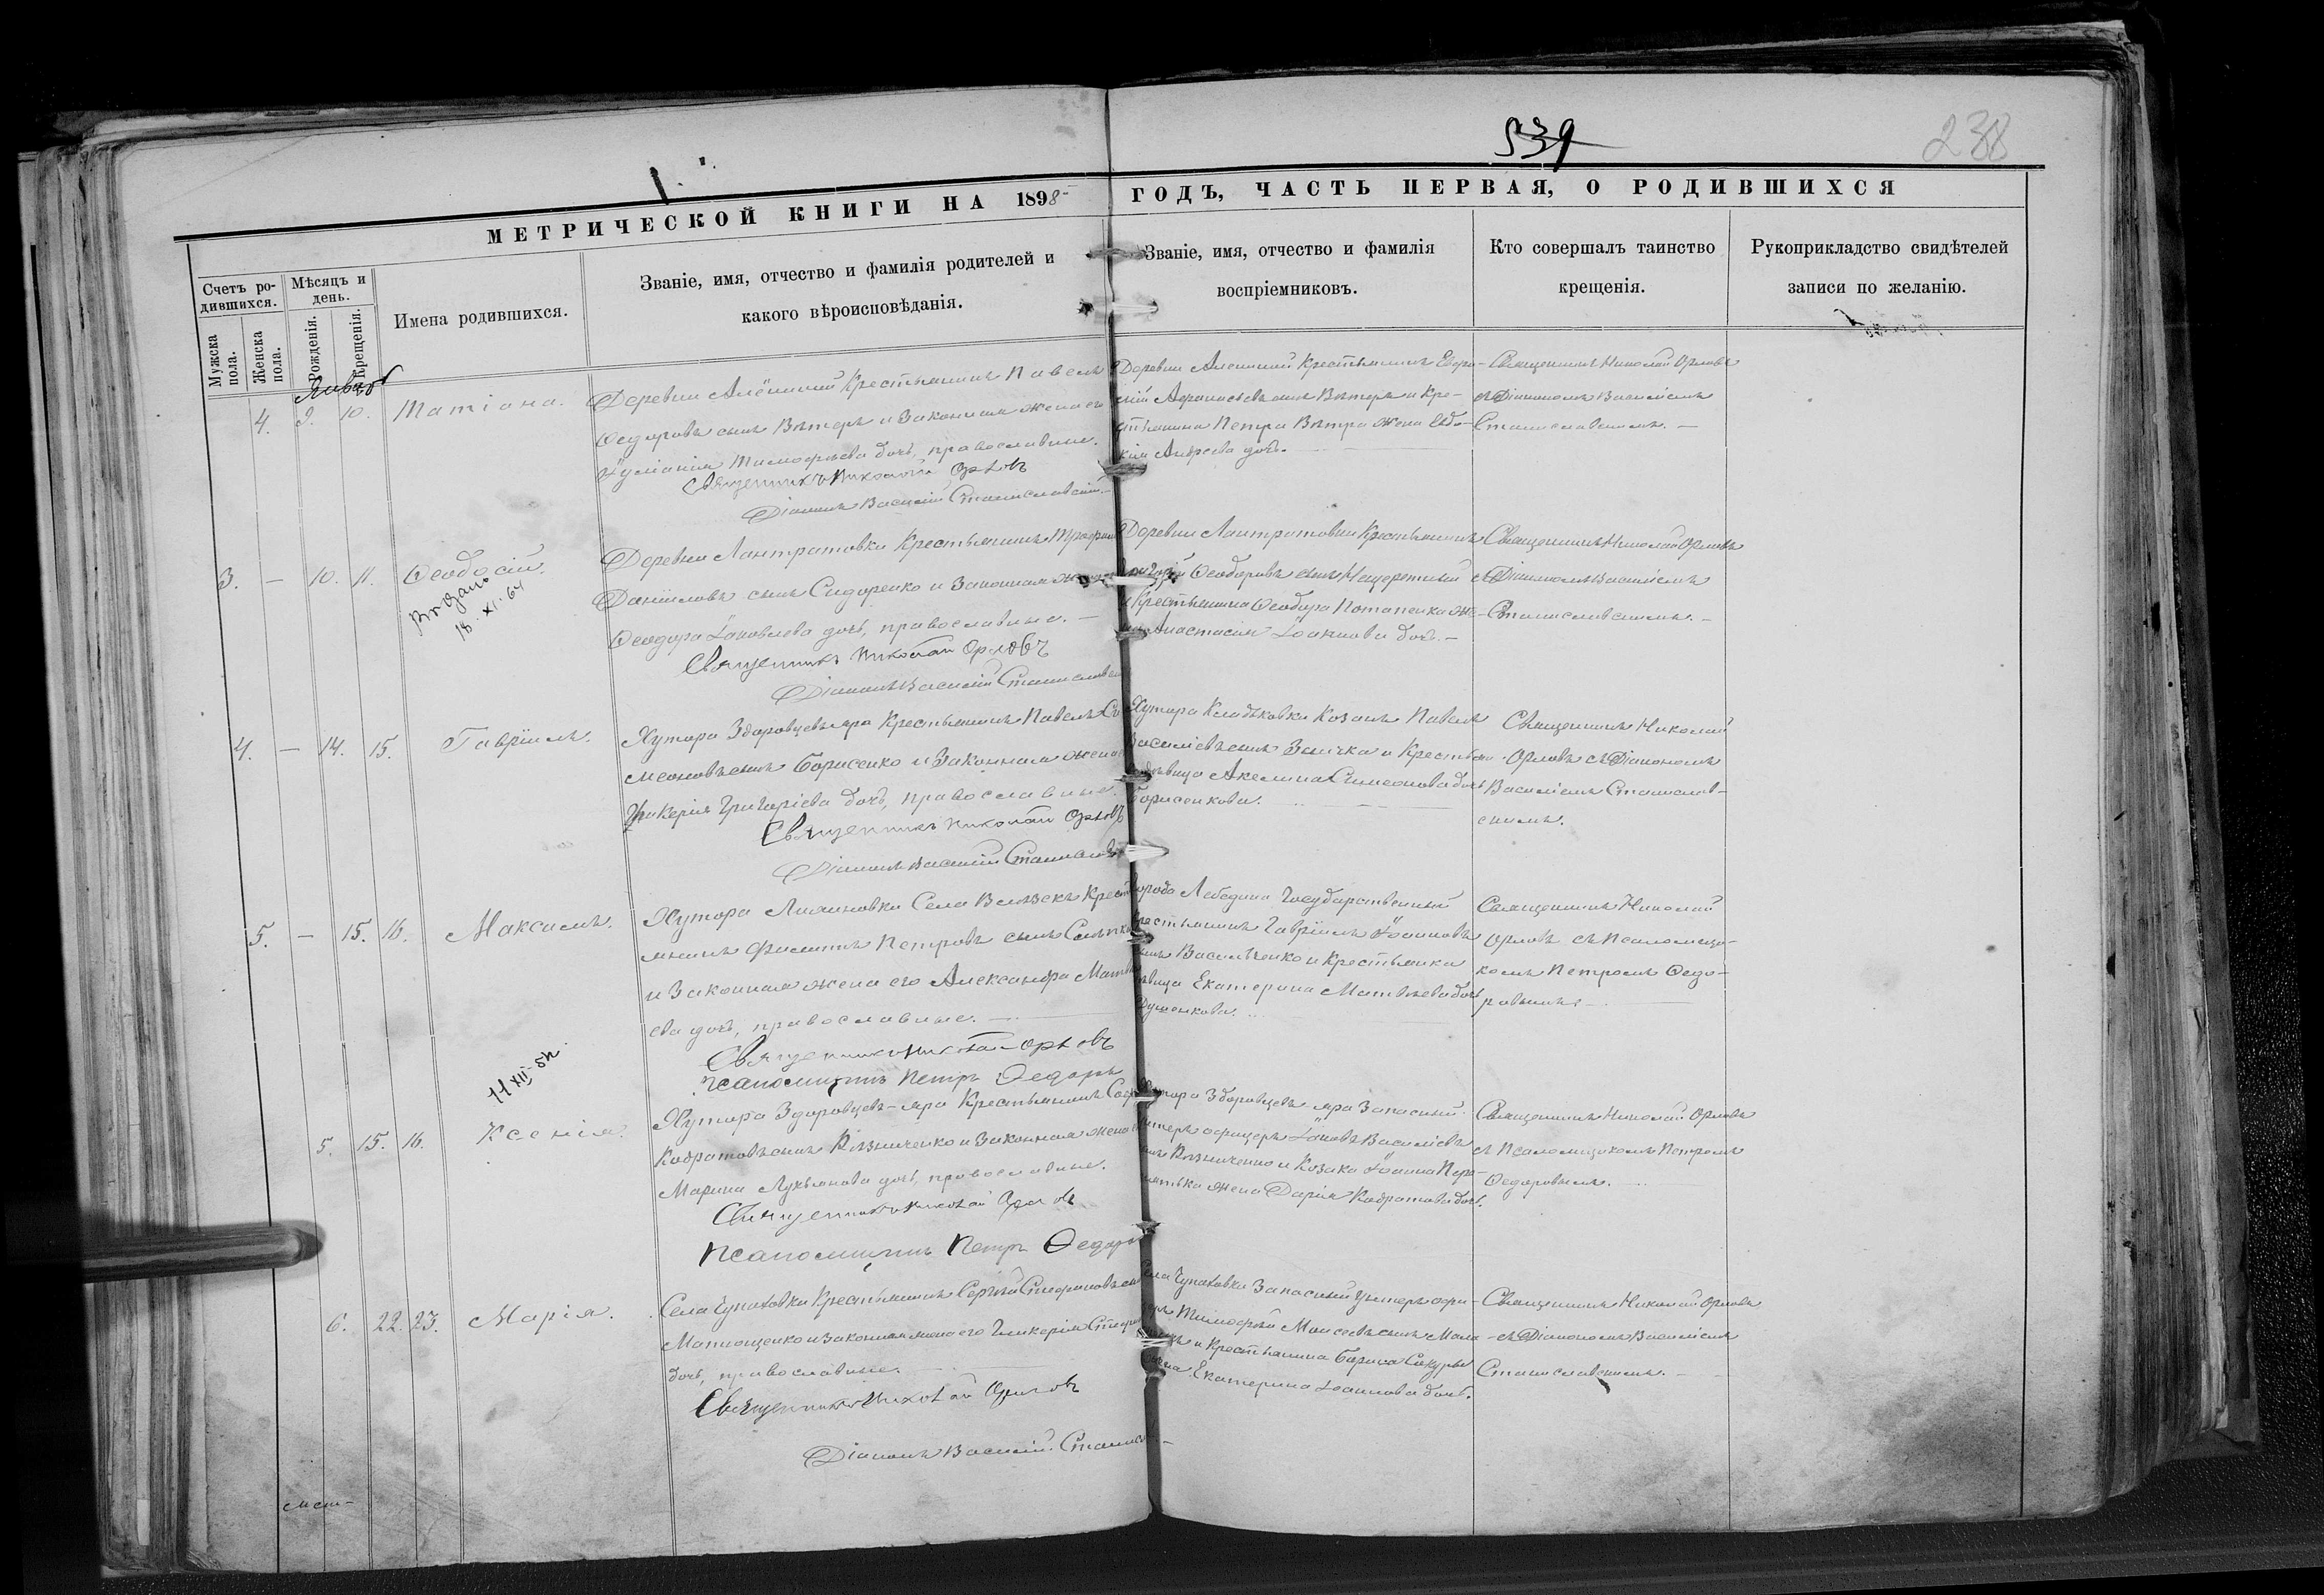 539
238
I.
МЕТРИЧЕСКОЙ КНИГИ НА 1898
ГОДЪ, ЧАСТЬ ПЕРВАЯ, О РОДИВШИХСЯ
Счетъ ро-
дившихся.
Мужска
пола.
Женска
пола.
Мѣсяцъ и
день.
Рожденія.
Крещенія.
Имена родившихся.
Званіе, имя, отчество и фамилія родителей и
какого вѣроисповѣданія.
Званіе, имя, отчество и фамилія
воспріемниковъ.
Кто совершалъ таинство
крещенія.
Рукоприкладство свидѣтелей
записи по желанію.
Январь
4. 9. 10. Татіана.
Деревни Крестьянинъ Павелъ
Ѳедоровъ сынъ Вѣтеръ и Законная жена его
Іуліанія Тимоѳѣева дочь, православные.
Священникъ Николай Орловъ
Діаконъ Василій Станиславскій
Деревни Крестьянинъ
Аѳанасьевъ сынъ Вѣтеръ и Кре-
стьянина Петра Вѣтра жена Евдо-
кія Андреева дочь.
Священникъ Николай Орловъ
съ Діакономъ Василіемъ
Станиславскимъ.
3. — 10. 11. Ѳеодосій.
18. XI. 64
Деревни Лантратовки Крестьянинъ
Даніиловъ сынъ Сидоренко и Законная жена
Ѳеодора Іаковлева дочь, православные.
Священникъ Николай Орловъ
Діаконъ Василій Станиславскій
Деревни Лантратовки Крестьянинъ
Ѳеодоровъ сынъ
и Крестьянина Ѳеодора Потапенка же-
на Анастасія Іоаннова дочь.
Священникъ Николай Орловъ
съ Діакономъ Василіемъ
Станиславскимъ.
4. — 14. 15. Гавріилъ.
Хутора Здоровцевъ-яра Крестьянинъ Павелъ Си-
меоновъ сынъ Борисенко и Законная жена
Гликерія Григоріева дочь, православные.
Священникъ Николай Орловъ
Діаконъ Василій Станиславскій
Хутора Кладьковки Козакъ Павелъ
Василіевъ сынъ и Крестьян.
дѣвица Акелина Симеонова дочь
Борисенкова.
Священникъ Николай
Орловъ съ Діакономъ
Василіемъ Станислав-
скимъ.
5. — 15. 16. Максимъ.
Хутора Села Крестья-
нинъ Филиппъ Петровъ сынъ
и Законная жена его Александра Матѳѣ-
ева дочь, православные.
Священникъ Николай Орловъ
Псаломщикъ Петръ Ѳедоръ
Города Лебедина Государственный
Крестьянинъ Гавріилъ Іоанновъ
сынъ Васильченко и Крестьянка
дѣвица Екатерина Матвѣева дочь
Священникъ Николай
Орловъ съ Псаломщи-
комъ Петромъ Ѳедо-
ровымъ.
5. 15. 16. Ксенія.
Хутора Здоровцевъ-яра Крестьянинъ
Кодратовъ сынъ Рѣзниченко и Законная жена
Марина Лукьянова дочь, православные.
Священникъ Николай Орловъ
Псаломщикъ Петръ Ѳедоръ
Хутора Здоровцевъ-яра Запасный
унтеръ офицеръ Іаковъ Василіевъ
сынъ Рѣзниченко и Козака Іоанна
жена Дарія Кодратова дочь.
Священникъ Николай Орловъ
съ Псаломщикомъ Петромъ
Ѳедоровымъ.
6. 22. 23. Марія.
Села Чупаховки Крестьянинъ Сергій Стефановъ сынъ
Матющенко и законная жена его Гликерія
дочь, православные.
Священникъ Николай Орловъ
Діаконъ Василій
Села Чупаховки Запасный унтеръ офи-
церъ Тимоѳей Моисеевъ сынъ
и крестьянина Бориса
жена Екатерина Іоаннова дочь.
Священникъ Николай Орловъ
съ Діакономъ Василіемъ
Станиславскимъ.